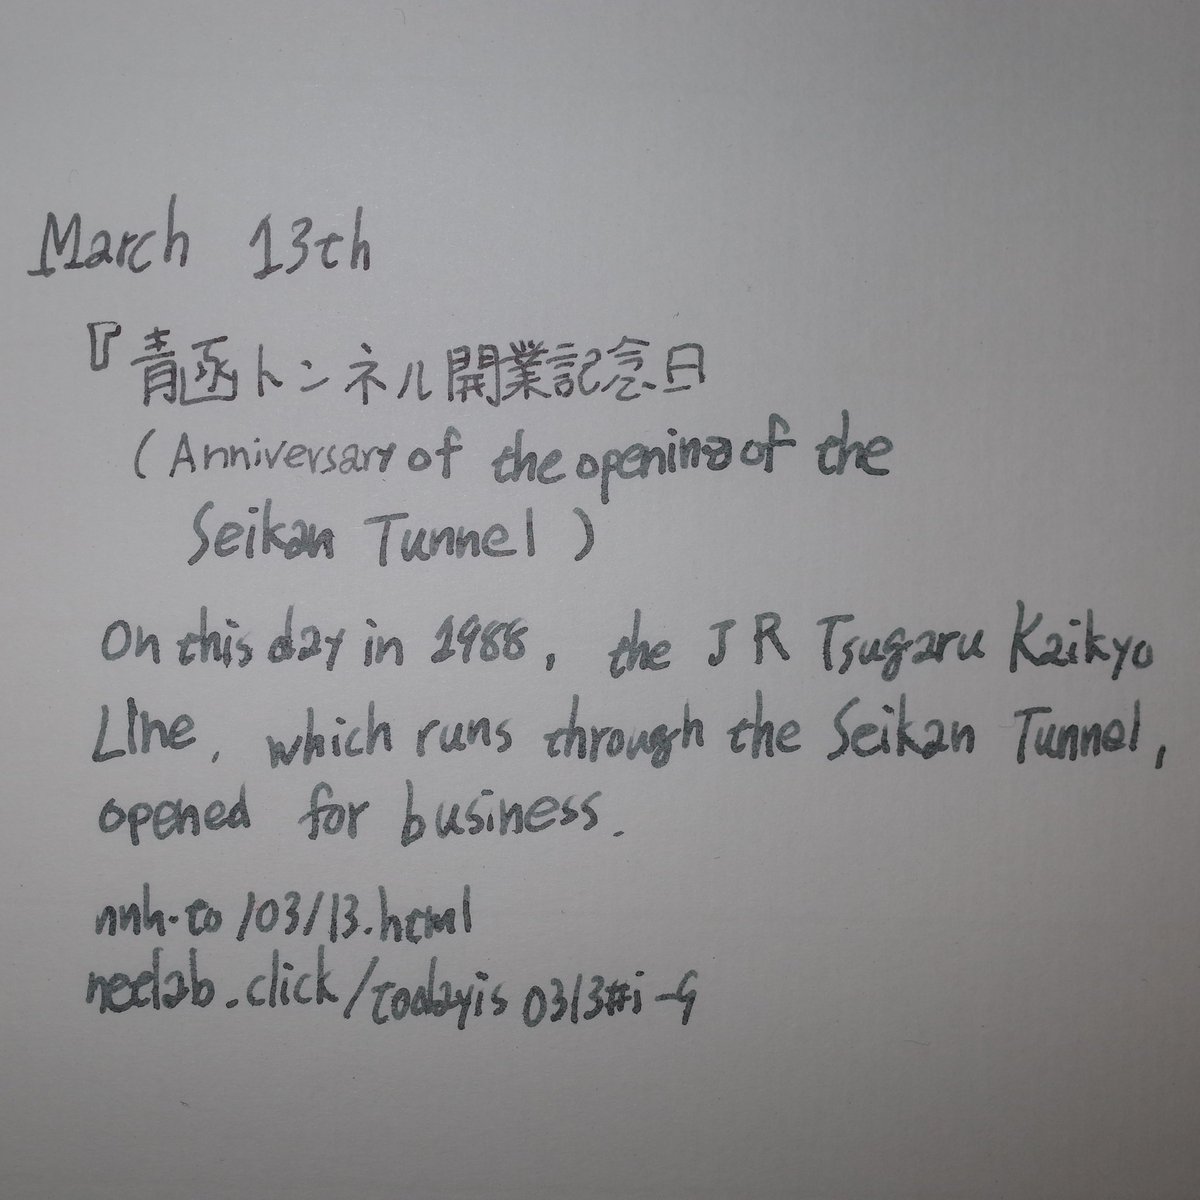 March 13th
『青函トンネル開業記念日
(Anniversary of the opening of the
Seikan Tunnel)
On this day in 1988, the JR Tsugaru Kaikyo
Line, which runs through the Seikan Tunnel,
opened for business.
nnh.to/03/13.html
netlab.click/todayis 0313#i-9